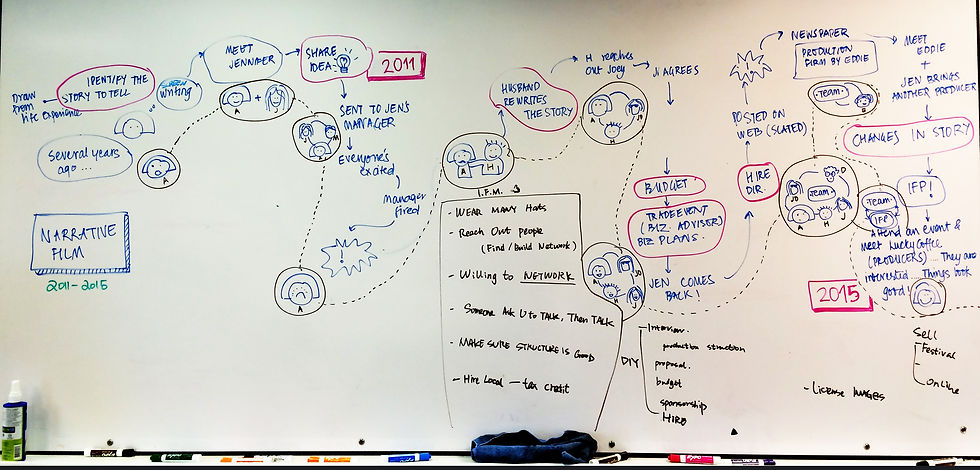 Several years
ago ...
Draw
from
life experience
IDENTIFY THE
STORY TO TELL
SCREEN
Writing
MEET
JENNIFER
SHARE
IDEA
2011
A
A + J
SENT TO JEN'S
MANAGER
Everyone's
exited
manager
fired
!
A
NARRATIVE
FILM
2011-2015
A H
HUSBAND
REWRITES
THE STORY
H reaches
Out Joey
J AGREES
A JO
H
BUDGET
TRADEEVENT
(BIZ. ADVISER)
BIZ PLANS.
JEN COMES
BACK!
A JO
H J
I.F.M.
- WEAR MANY HATS
- Reach Out people
(Find/Build Network)
- Willing to NETWORK
- Someone Ask U to TALK, Then TALK
- MAKE SURE STRUCTURE IS GOOD
- Hire Local — tax credit
DIY
Interview
production
proposal.
budget
sponsorship
HIRE
HIRE
DIR.
POSTED ON
WEB (SLATED)
NEWSPAPER
PRODUCTION
FIRM BY EDDIE
Team
E
MEET
EDDIE
+
JEN BRINGS
ANOTHER PRODUCER
CHANGES IN STORY
IFP!
Attend an event &
meet Lucky Coffee
(PRODUCERS) .... They are
interested .... Things look
good!
D
JO Team
A H J
Team
IFP
2015
A
Sell
- Festival
-
- Online
- LICENSE IMAGES